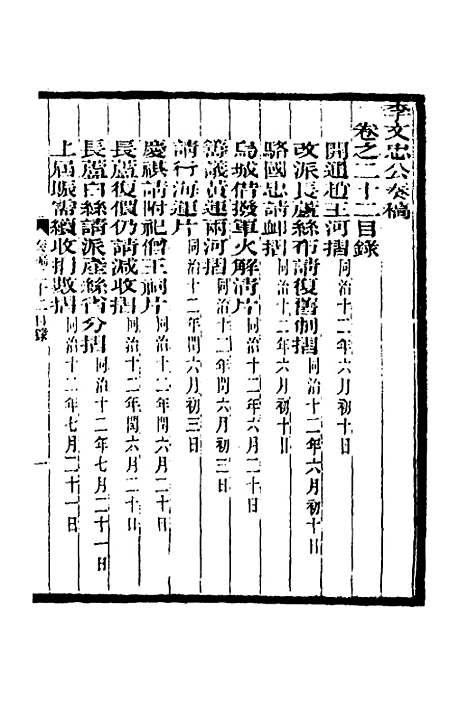 李文忠公奏稿
卷之二十二目錄
開通趙王河摺 同治十二年六月初十日
改派長蘆絲布請復舊制摺 同治十二年六月初十日
駱國忠請卹摺 同治十二年六月初十日
烏城借撥軍火解清片 同治十二年六月二十日
籌議黃運兩河摺 同治十二年閏六月初三日
請行海運片 同治十二年閏六月初三日
慶祺請附祀僧王祠片 同治十二年閏六月二十日
長蘆復價仍請減收摺 同治十二年閏六月二十日
長蘆白絲請派產絲省分摺 同治十二年七月二十一日
上屆賑需續收捐數摺 同治十二年七月二十一日
奏稿 二十二目錄 一